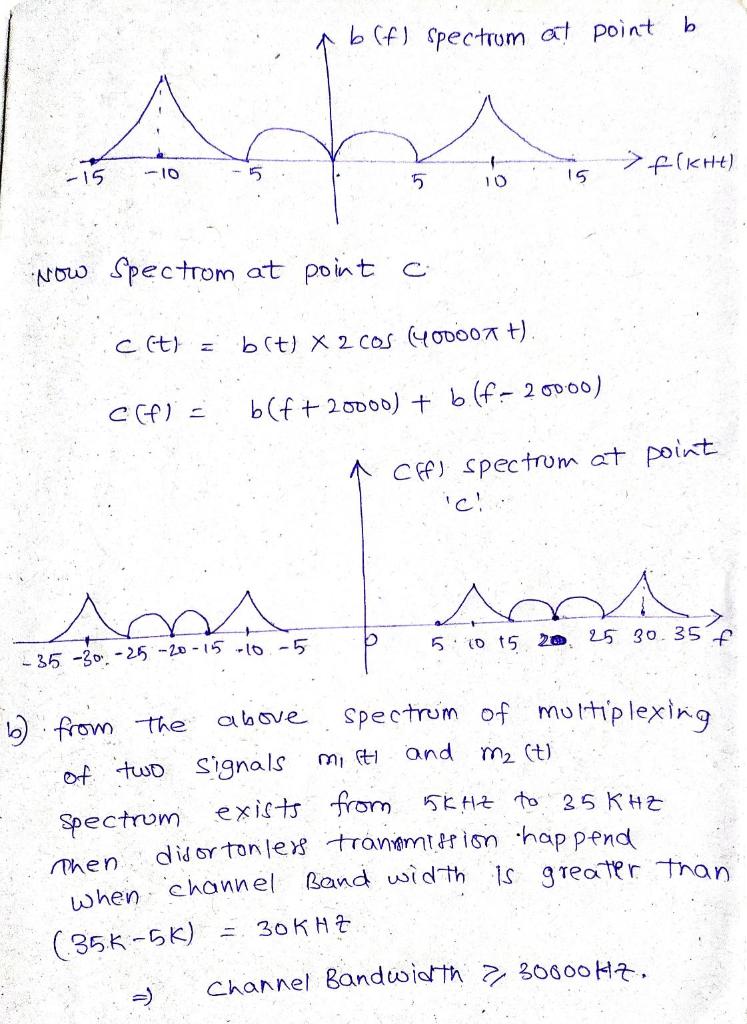 b(f) spectrum at point b
-15 -10 -5 5 10 15 f(KHz)
Now Spectrum at point c
c(t) = b(t) x 2 cos (40000π t).
c(f) = b(f + 20000) + b(f - 20000)
c(f) spectrum at point
'c'.
-35 -30. -25 -20 -15 -10 -5 0 5 10 15 20. 25 30. 35 f
b) from the above spectrum of multiplexing
of two signals m₁(t) and m₂(t)
Spectrum exists from 5KHz to 35 KHz
Then disortonless transmission happend
when channel Band width is greater than
(35K-5K) = 30KHz
⇒ Channel Bandwidth ≥ 30000Hz.